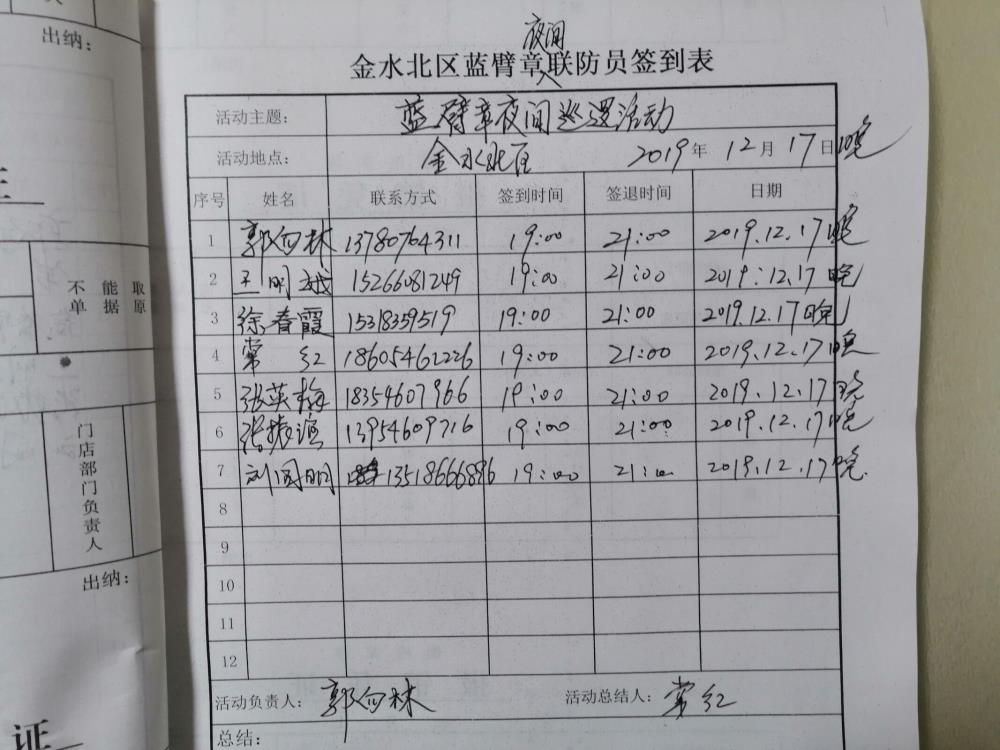 出纳：
不 能 取
单 据 原
门店部门负责人
出纳：
证
夜间
金水北区蓝臂章联防员签到表
活动主题： 蓝臂章夜间巡逻活动
活动地点： 金水北区 2019年12月17日晚
序号 姓名 联系方式 签到时间 签退时间 日期
1 郭向林 13780764311 19:00 21:00 2019.12.17晚
2 王明 15266081249 19:00 21:00 2019.12.17晚
3 徐春霞 15318359519 19:00 21:00 2019.12.17晚
4 常红 18605462226 19:00 21:00 2019.12.17晚
5 张英梅 18354607966 19:00 21:00 2019.12.17晚
6 张振 13954609716 19:00 21:00 2019.12.17晚
7 刘国明 13518666896 19:00 21:00 2019.12.17晚
8
9
10
11
12
活动负责人： 郭向林 活动总结人： 常红
总结：